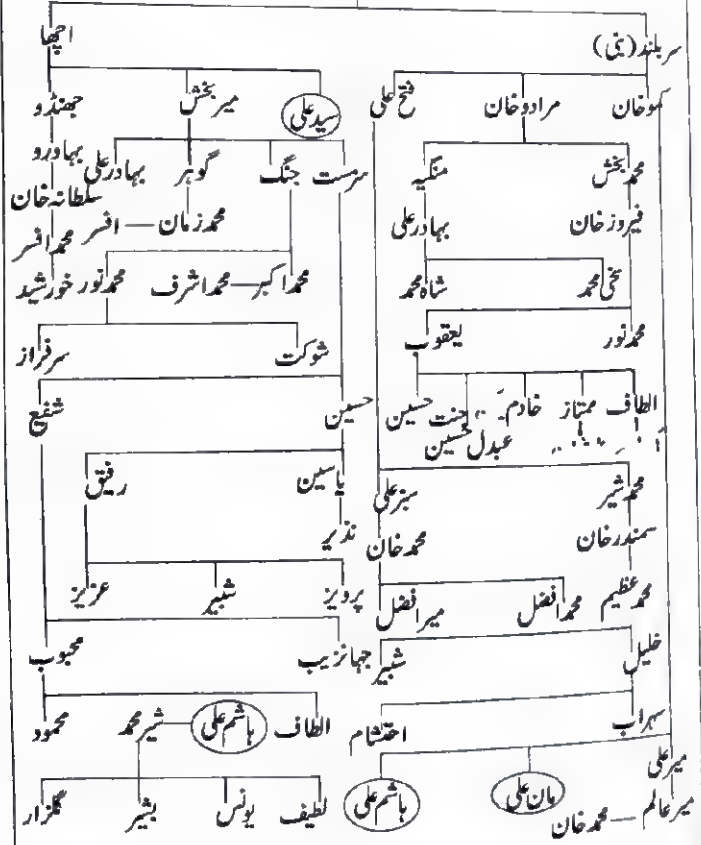 سربلند (بنی) اچھا
کموخان مرادوخان فتح علی سید علی میر بخش جھنڈو
محمد بخش منگیہ سرمست جنگ گوہر بہادر علی بہادرو
فیروز خان بہادر علی محمد زمان — افسر سلطانہ خان
محمد افسر
سخی محمد شاہ محمد محمد اکبر — محمد اشرف محمد نور خورشید
محمد نور یعقوب شوکت سرفراز
الطاف ممتاز خادم جنت حسین حسین شفیع
عبدل حسین
محمد شیر سبز علی یاسین رفیق
سمندر خان محمد خان نذیر
محمد عظیم محمد افضل میر افضل پرویز شبیر عزیز
خلیل شبیر جہانزیب محبوب
سہراب احتشام الطاف ہاشم علی — شیر محمد محمود
میر علی
میر عالم — محمد خان مان علی ہاشم علی لطیف یونس بشیر گلزار